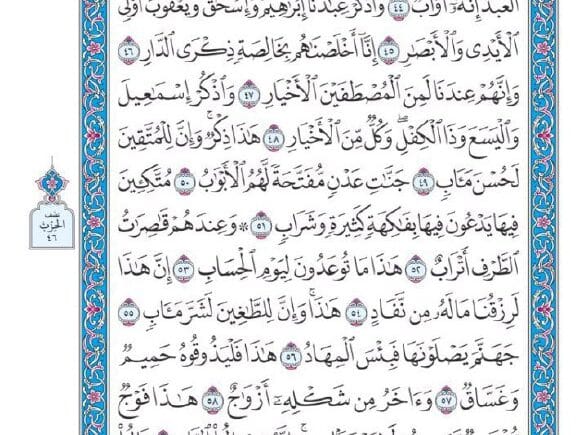 العبد إنه أواب ٤٤ واذكر عبدنا إبرهيم وإسحق ويعقوب أولي
ٱلْأَيْدِى وَٱلْأَبْصَٰرِ ٤٥ إِنَّآ أَخْلَصْنَٰهُم بِخَالِصَةٍ ذِكْرَى ٱلدَّارِ ٤٦
وَإِنَّهُمْ عِندَنَا لَمِنَ ٱلْمُصْطَفَيْنَ ٱلْأَخْيَارِ ٤٧ وَٱذْكُرْ إِسْمَٰعِيلَ
وَٱلْيَسَعَ وَذَا ٱلْكِفْلِ ۖ وَكُلٌّ مِّنَ ٱلْأَخْيَارِ ٤٨ هَٰذَا ذِكْرٌ ۚ وَإِنَّ لِلْمُتَّقِينَ
لَحُسْنَ مَـَٔابٍ ٤٩ جَنَّٰتِ عَدْنٍ مُّفَتَّحَةً لَّهُمُ ٱلْأَبْوَٰبُ ٥٠ مُتَّكِـِٔينَ
فِيهَا يَدْعُونَ فِيهَا بِفَٰكِهَةٍ كَثِيرَةٍ وَشَرَابٍ ٥١ ۞ وَعِندَهُمْ قَٰصِرَٰتُ
ٱلطَّرْفِ أَتْرَابٌ ٥٢ هَٰذَا مَا تُوعَدُونَ لِيَوْمِ ٱلْحِسَابِ ٥٣ إِنَّ هَٰذَا
لَرِزْقُنَا مَا لَهُۥ مِن نَّفَادٍ ٥٤ هَٰذَا ۚ وَإِنَّ لِلطَّٰغِينَ لَشَرَّ مَـَٔابٍ ٥٥
جَهَنَّمَ يَصْلَوْنَهَا فَبِئْسَ ٱلْمِهَادُ ٥٦ هَٰذَا فَلْيَذُوقُوهُ حَمِيمٌ
وَغَسَّاقٌ ٥٧ وَءَاخَرُ مِن شَكْلِهِۦٓ أَزْوَٰجٌ ٥٨ هَٰذَا فَوْجٌ
نصف
الحزب
٤٦